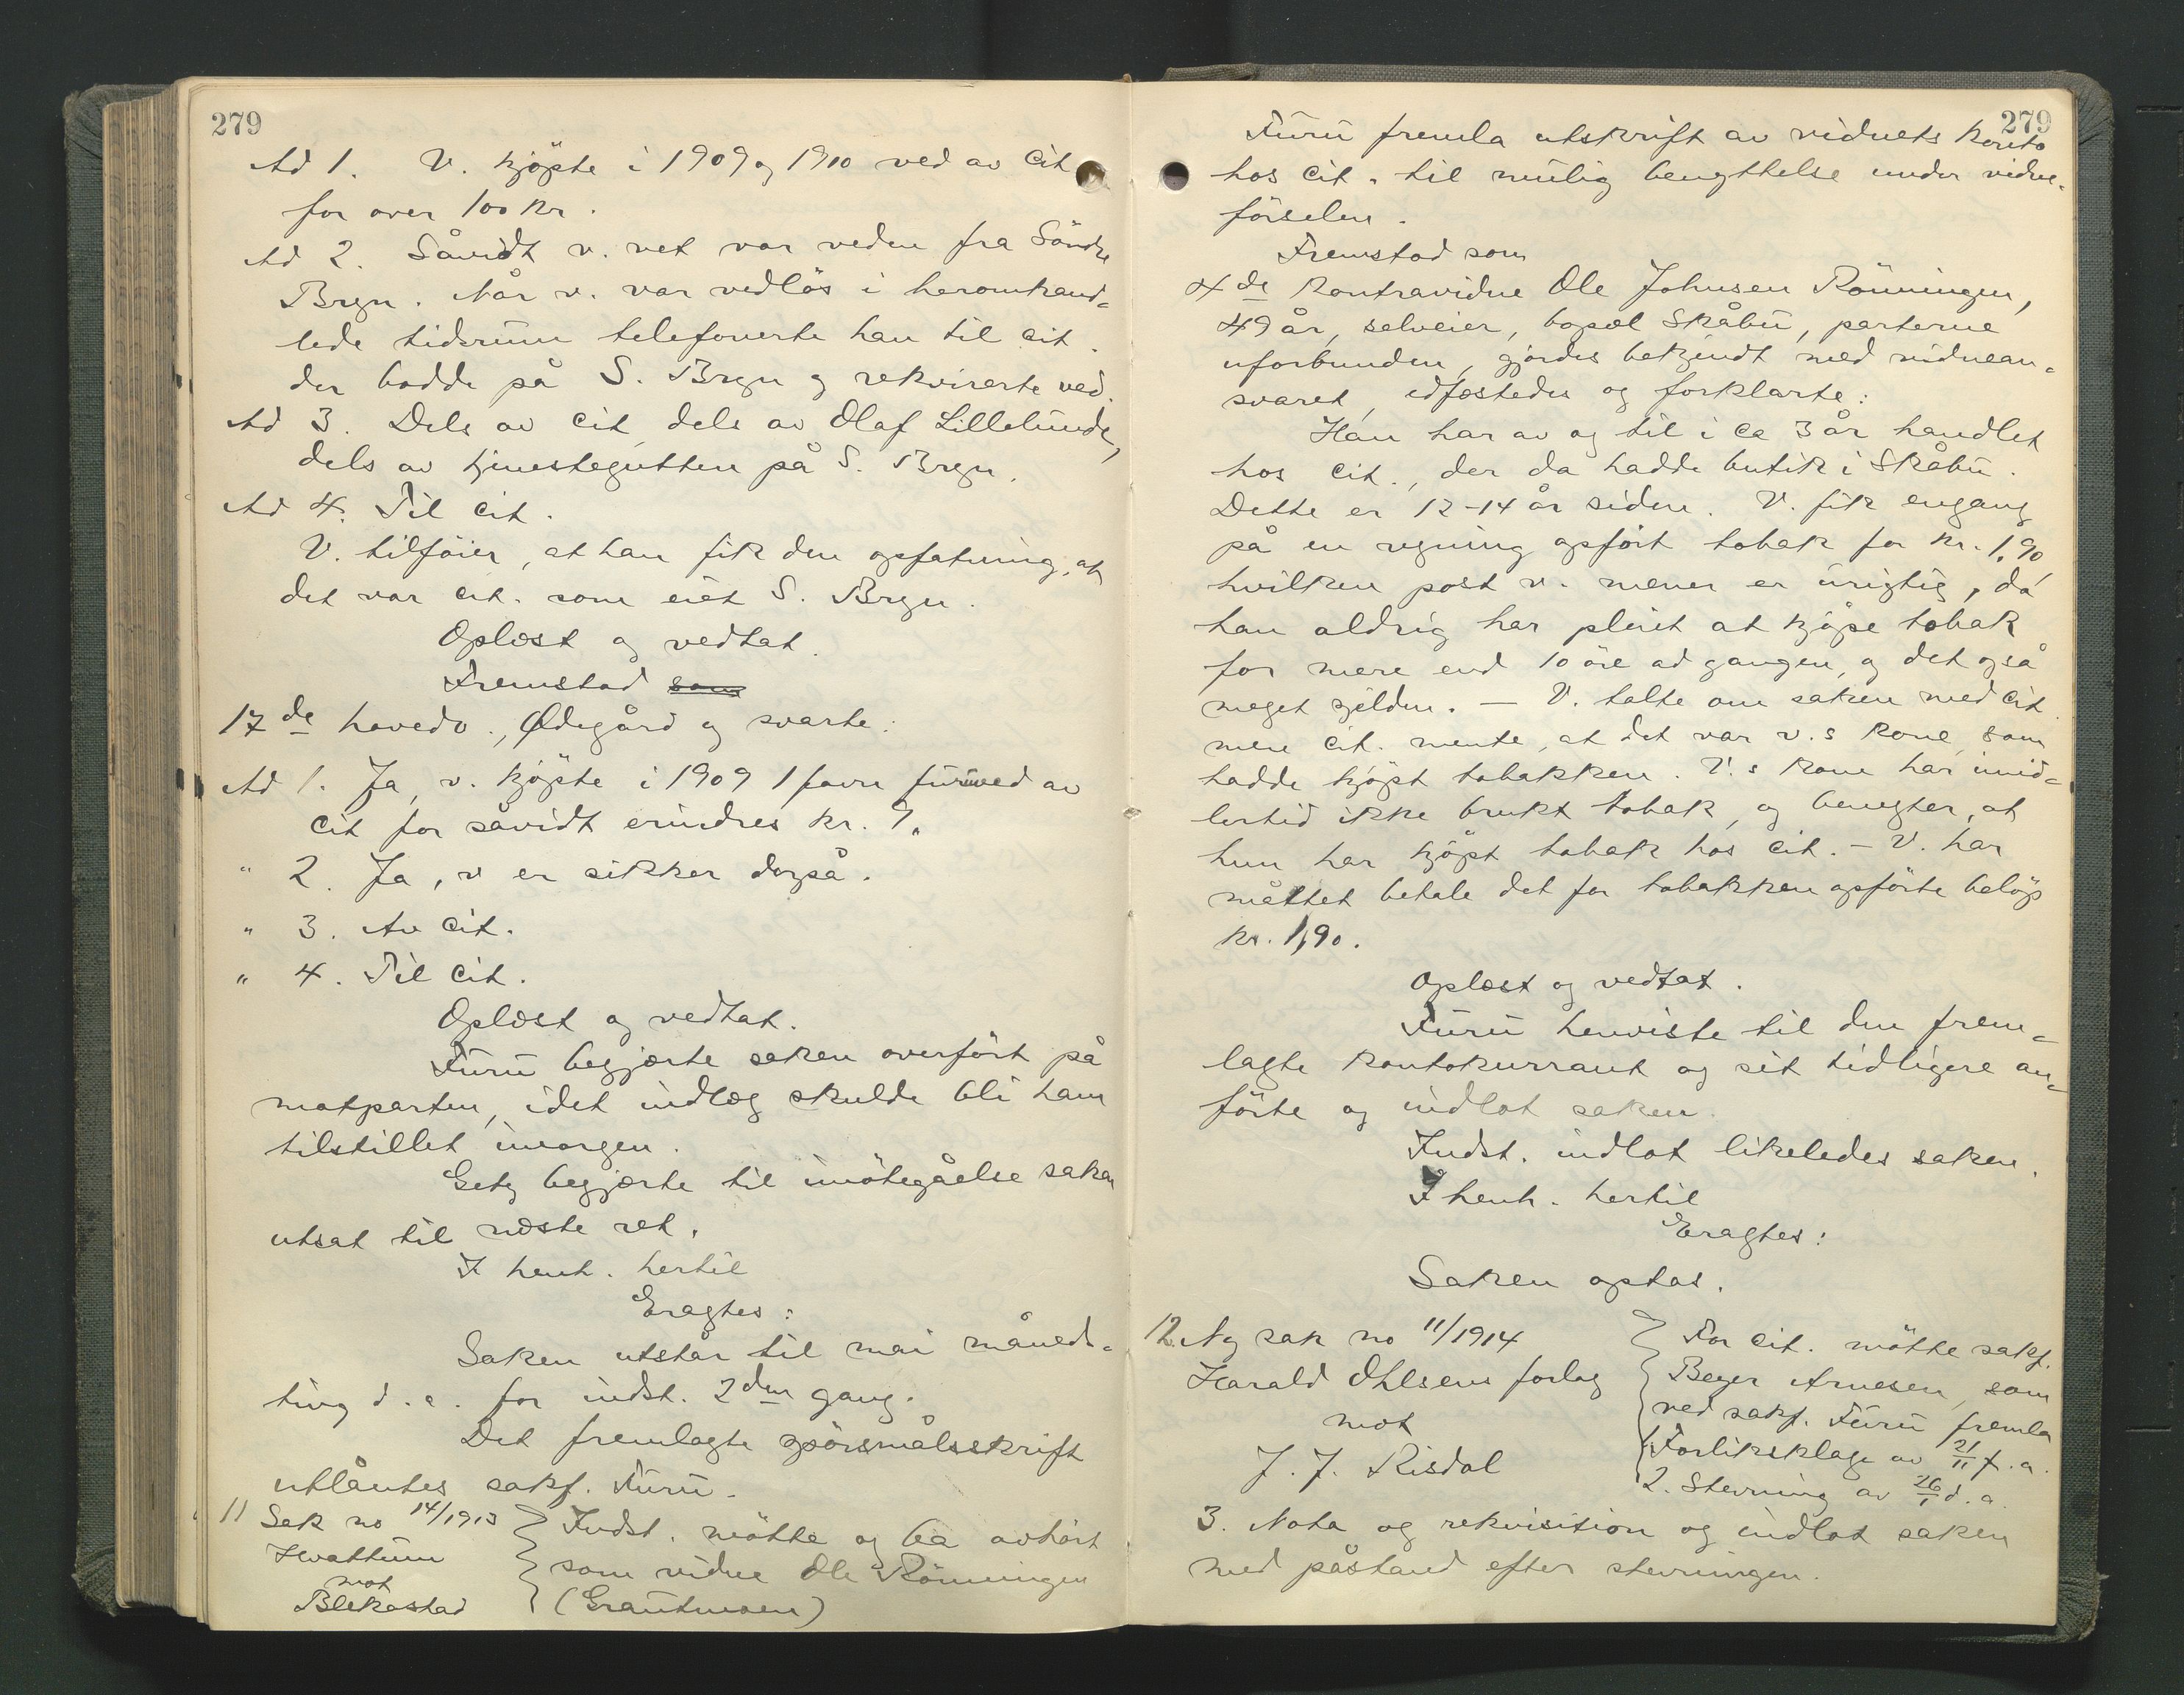 279
Ad 1. V. kjöpte i 1909 og 1910 ved av Cit
for over 100 kr.
Ad 2. Såvidt v. vet var veden fra Söndre
Brgn. Når v. var vedlös i heromhand-
lede tidsrum telefonerte han til cit.
der bodde på S. Brgn og rekvirerte ved.
Ad 3. Dels av cit, dels av Olaf Lillelunde,
dels av tjenestegutten på S. Brgn.
Ad 4. Til cit.
V. tilföier, at han fik den opfatning, at
det var cit. som eiet S. Brgn.
Oplæst og vedtat.
Fremstod som
17de hovedv., Ødegård og svarte:
Ad 1. Ja, v. kjöpte i 1909 1 favn furuved av
cit for såvidt erindres kr. 7.
" 2. Ja, v er sikker derpå.
" 3. Av cit.
" 4. Til cit.
Oplæst og vedtat.
Furu begjærte saken overfört på
motparten, idet indlæg skulde bli ham
tilstillet imorgen.
Getz begjærte til imötegåelse saken
utsat til næste ret.
I henh. hertil
Eragtes:
Saken utstår til mai måneds-
ting d.a. for indst. 2den gang.
Det fremlagte spörsmålsskrift
utlåntes sakf. Furu.
11 Sak no 14/1913
Hvattum
mot
Blekastad
Indst. mötte og ba avhört
som vidne Ole Rönningen
(Grautmoen)
279
Furu fremla utskrift av vidnets konto
hos Cit. til mulig benyttelse under vidne-
förselen.
Fremstod som
4de kontravidne Ole Johnsen Rönningen,
49 år, selveier, bopæl Skåbu, parterne
uforbunden, gjordes bekjendt med vidnean-
svaret, edfæstedes og forklarte:
Han har av og til i ca 3 år handlet
hos cit., der da hadde butik i Skåbu.
Dette er 12-14 år siden. V. fik engang
på en regning opfört tobak for kr. 1,90,
hvilken post v. mener er urigtig, da
han aldrig har pleiet at kjöpe tobak
for mere end 10 öre ad gangen, og det også
meget sjelden. – V. talte om saken med cit.
men cit. mente, at det var v.s kone, som
hadde kjöpt tobakken. V.s kone har imid-
lertid ikke brukt tobak, og benegter, at
hun har kjöpt tobak hos cit. – V. har
måttet betale det for tobakken opförte belöp
kr. 1,90.
Oplæst og vedtat.
Furu henviste til den frem-
lagte kontokurrant og sit tidligere an-
förte og indlot saken.
Indst. indlot likeledes saken.
I henh. hertil
Eragtes:
Saken optas.
12. Ny sak no 11/1914
Harald Ohlsens forlag
mot
J. J. Risdal
For cit. mötte sakf.
Beyer Arnesen, som
ved sakf. Furu fremla
1. Forliksklage av 21/11 f.a.
2. Stevning av 26/1 d.a.
3. Nota og rekvisition og indlot saken
med påstand efter stevningen.